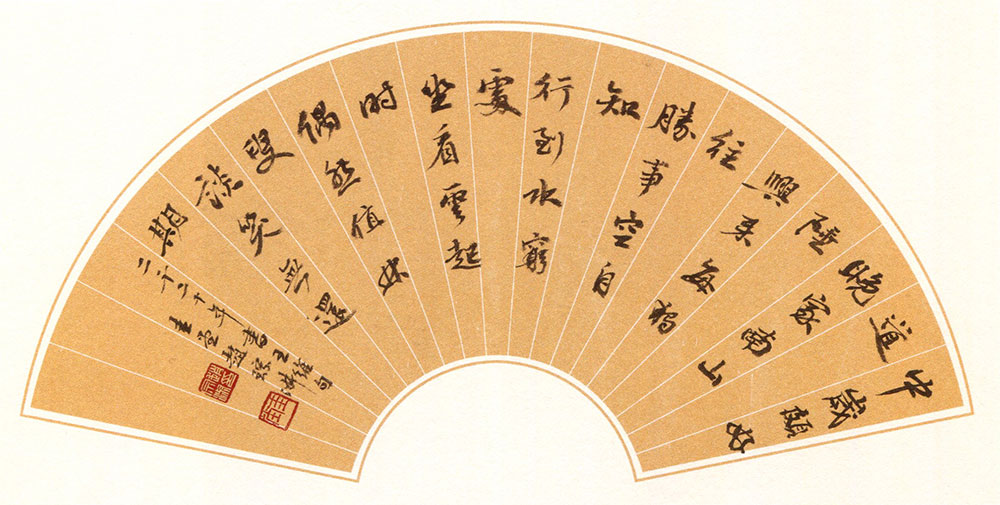 中歲頗好
道
晚家南山
陲
興來每獨
往
勝事空自
知
行到水窮
處
坐看雲起
时
偶然值林
叟
談笑無還
期
年書王維句